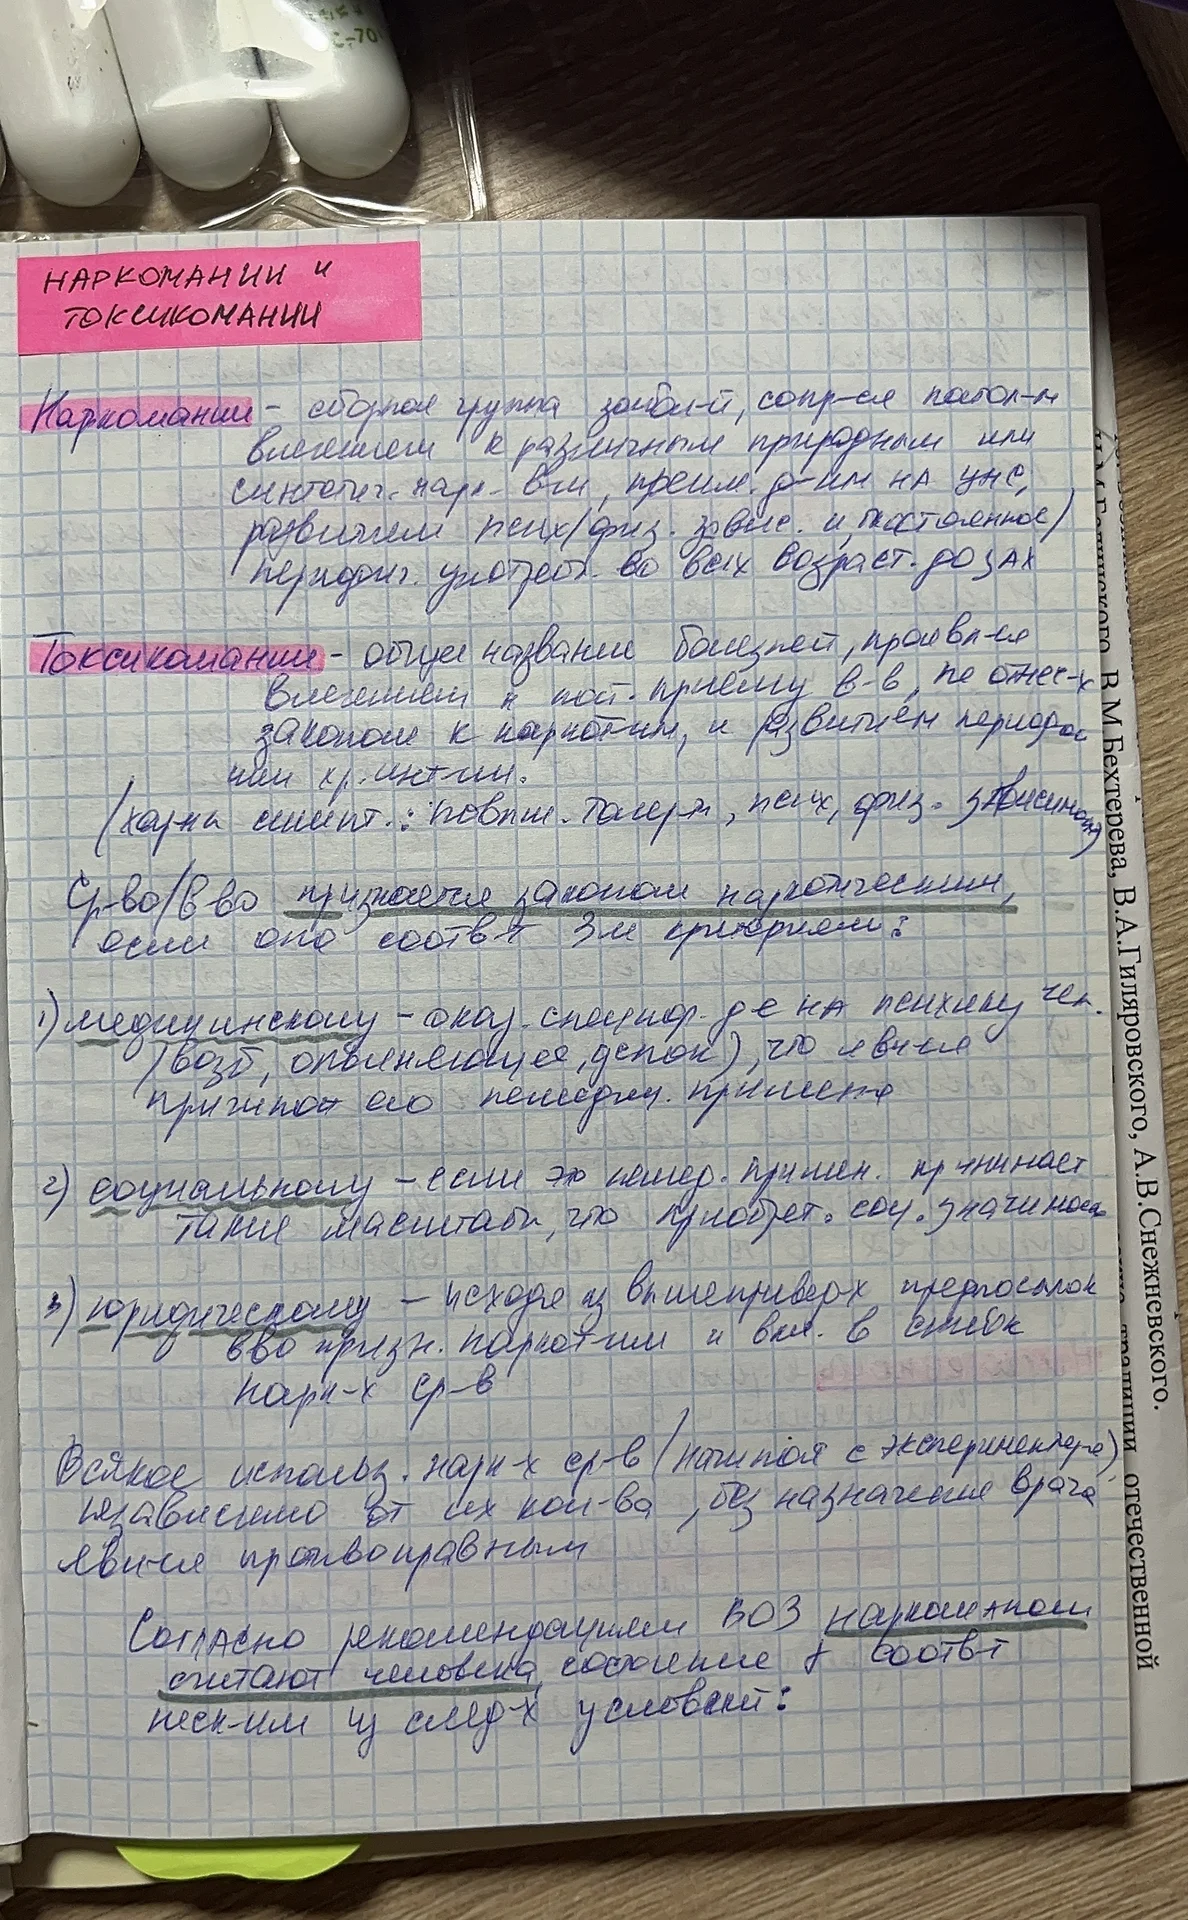 С-70
НАРКОМАНИИ И
ТОКСИКОМАНИИ
Наркомании - сборная группа забол-й, сопр-ся патол-м
влечением к различным природным или
синтетич. нарк. в-м, преим. д-им на ЦНС,
развитием псих/физ. завис. и постоянное/
периодич. употреб. во всех возраст. дозах
Токсикомании - общее название болезней, проявл-ся
влечением к пост. приёму в-в, не отнес-х
законом к наркот-им, и развитием период
или хр. инт-ии.
(хар-на симпт.: повыш. толер-и, псих, физ. зависимость)
Ср-во/в-во признается законом наркотическим,
если оно соотв-т 3м критериям:
1) медицинскому - оказ. специф. д-е на психику чел.
(возб, опьяняющее, депрес), что явл-ся
причиной его немедиц. примен-я
2) социальному - если это немед. примен. принимает
такие масштабы, что приобрет. соц. значимость
3) юридическому - исходя из вышеприведх предпосылок
в-во призн. наркот-им и вкл. в список
нарк-х ср-в
Всякое использ. нарк-х ср-в (начиная с эксперимент-го)
независимо от их кол-ва, без назначения врача
явл-ся противоправным
Согласно рекомендациям ВОЗ наркоманом
считают человека, состояние соотв-т
неск-им из след-х условий:
В.М.Бехтерева, В.А.Гиляровского, А.В.Снежневского.
традиции отечественной